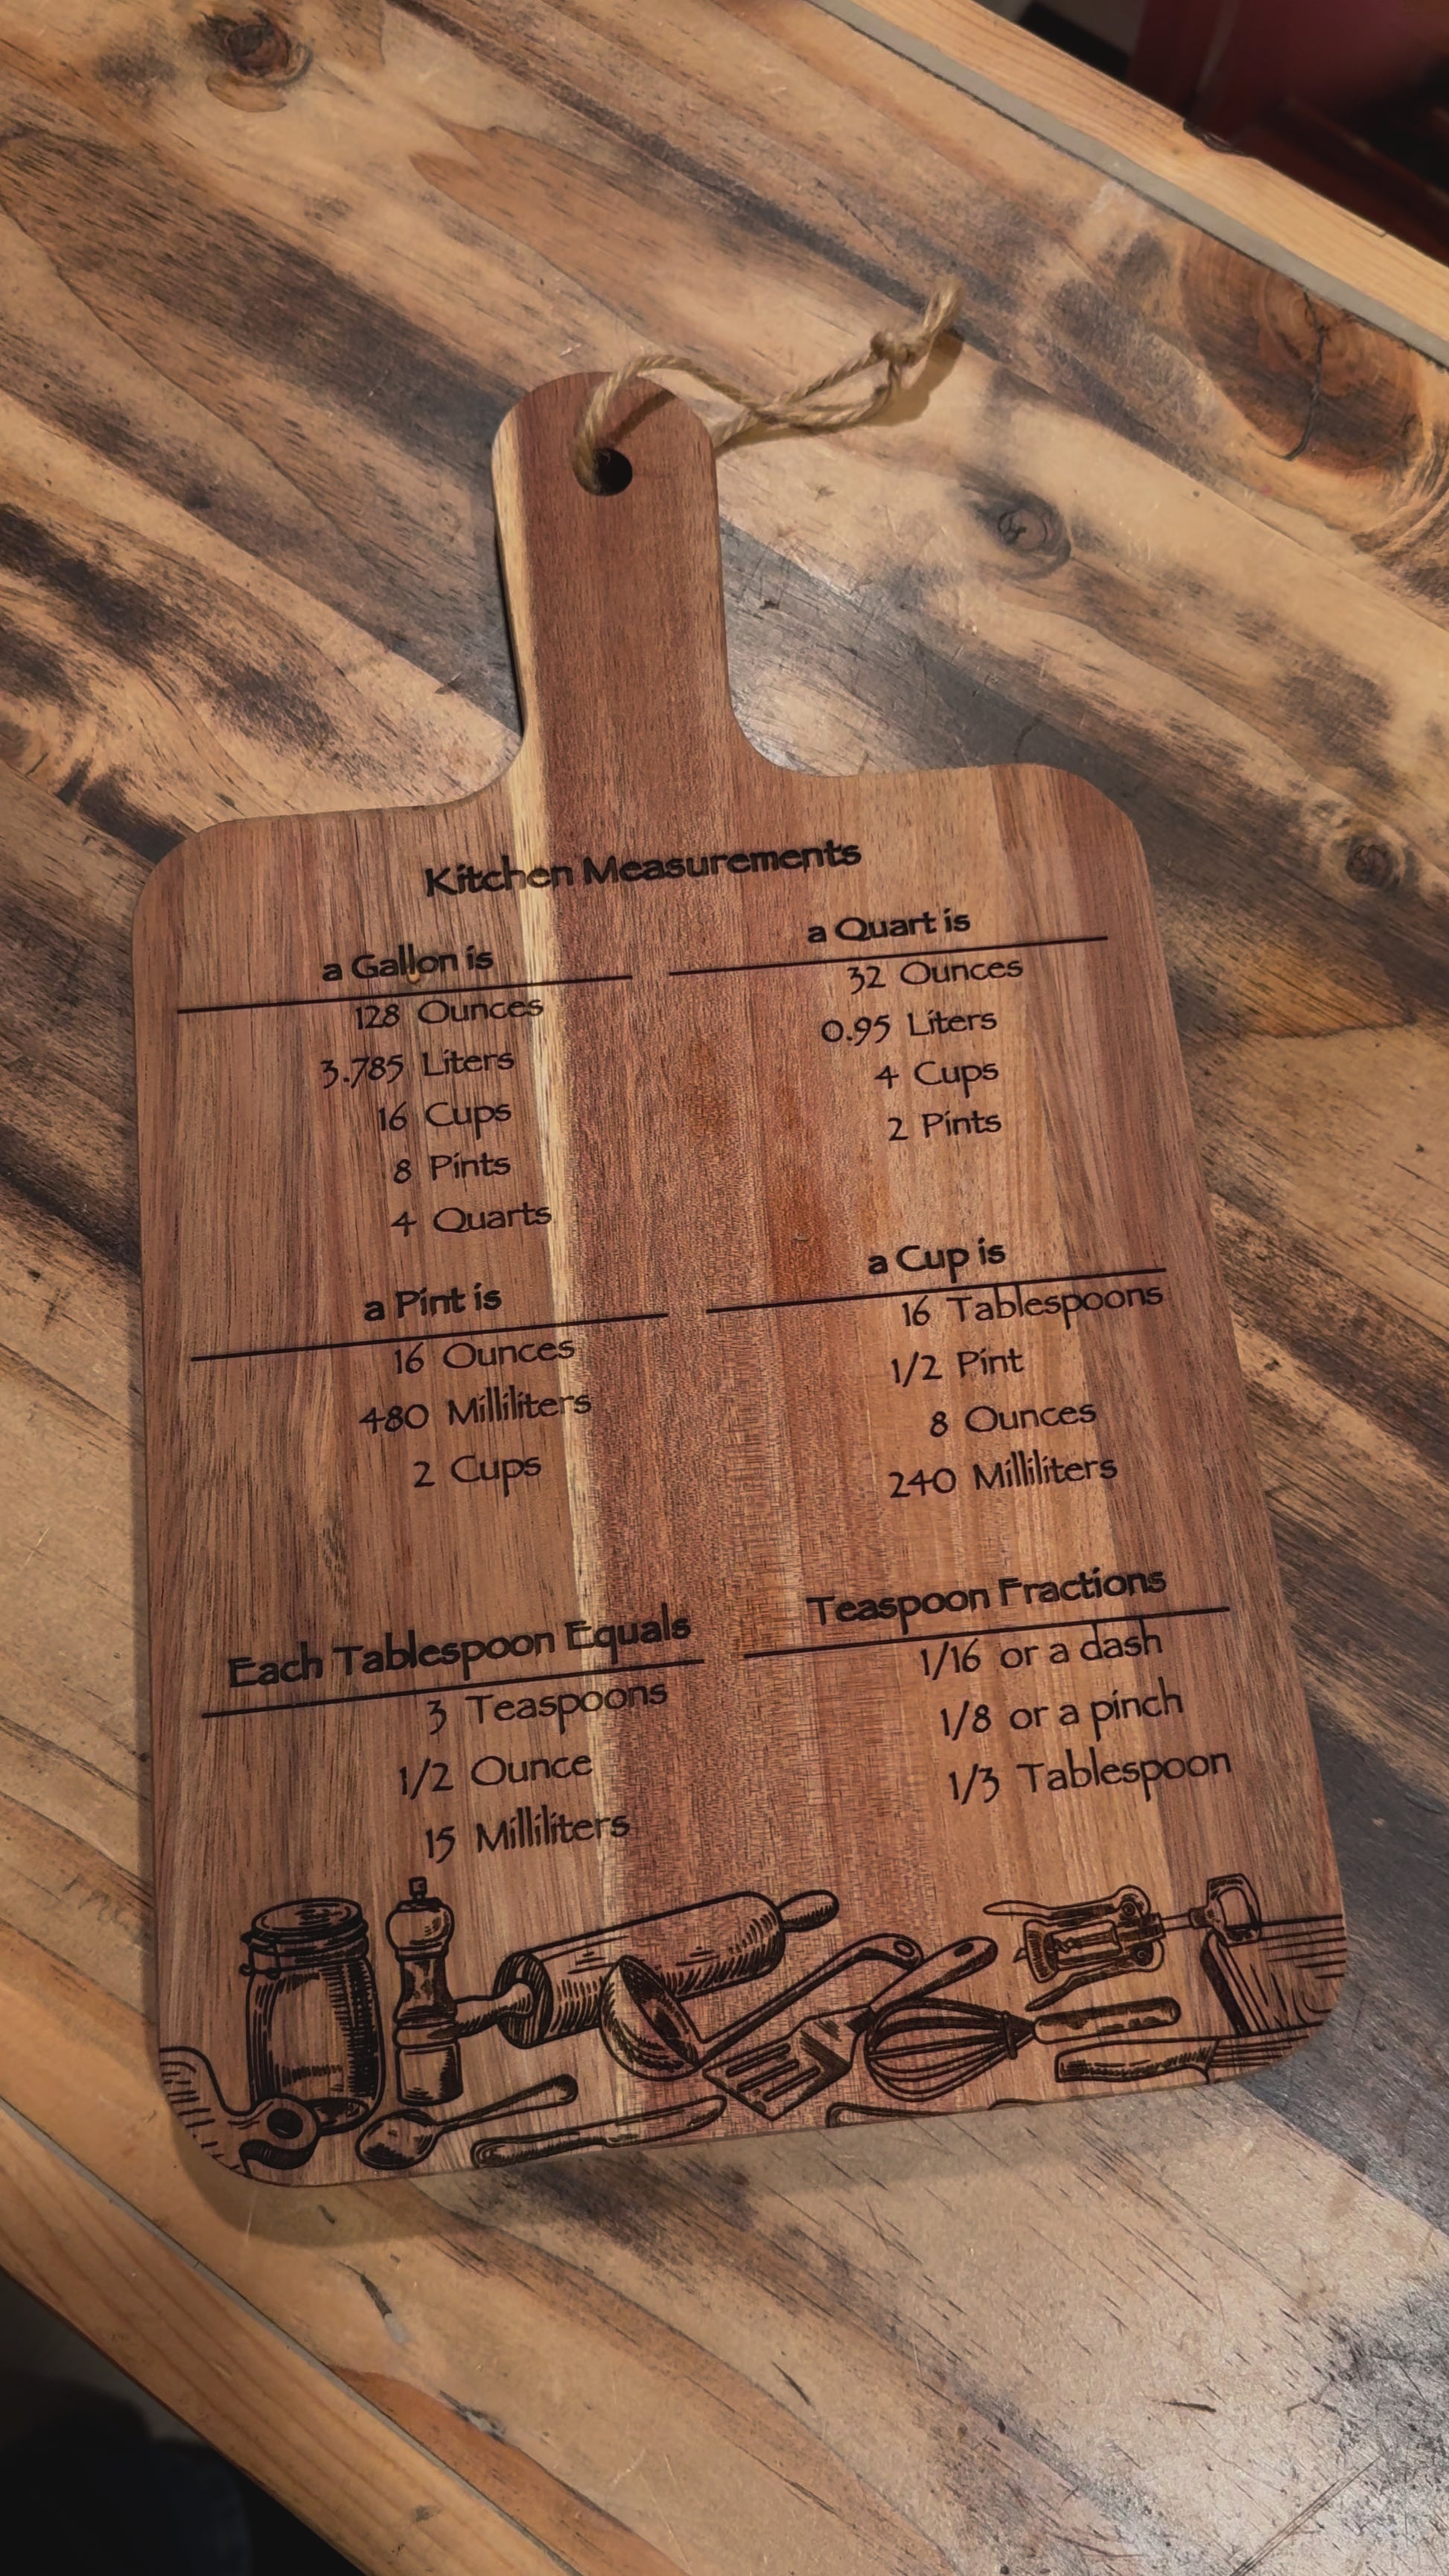 Kitchen Measurements
a Gallon is
128 Ounces
3.785 Liters
16 Cups
8 Pints
4 Quarts
a Quart is
32 Ounces
0.95 Liters
4 Cups
2 Pints
a Pint is
16 Ounces
480 Milliliters
2 Cups
a Cup is
16 Tablespoons
1/2 Pint
8 Ounces
240 Milliliters
Each Tablespoon Equals
3 Teaspoons
1/2 Ounce
15 Milliliters
Teaspoon Fractions
1/16 or a dash
1/8 or a pinch
1/3 Tablespoon